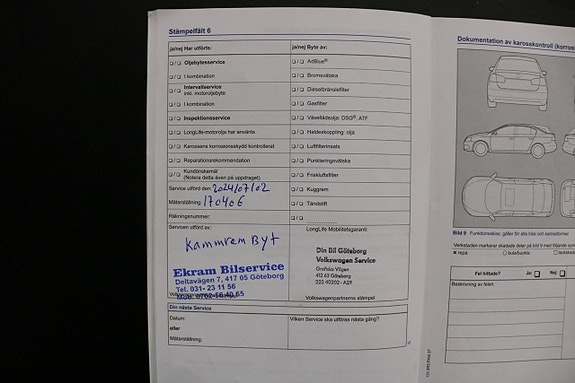 Stämpelfält 6
ja/nej Har utförts:
ja/nej Byte av:
Oljebytesservice
AdBlue®
I kombination
Bromsvätska
Intervallservice
inkl. motoroljebyte
Dieselbränslefilter
I kombination
Gasfilter
Inspektionsservice
Växellådsolja: DSG®, ATF
LongLife-motorolja har använts
Haldexkoppling: olja
Karossens korrosionsskydd kontrollerat
Luftfilterinsats
Reparationsrekommendation
Punkteringsvätska
Kundönskemål
(Notera detta även på uppdraget)
Friskluftsfilter
Service utförd den: 2024/07/02
Kuggrem
Mätarställning: 170406
Tändstift
Räkningsnummer:
Servicen utförd av:
LongLife Mobilitetsgaranti:
Kamrem Byt
Ekram Bilservice
Deltavägen 7, 417 05 Göteborg
Tel. 031- 23 11 56
Mob: 0762-56 40 65
Din Bil Göteborg
Volkswagen Service
Grafiska Vägen
412 63 Göteborg
Volkswagenpartnerns stämpel
Din nästa Service
Datum:
eller
Mätarställning:
Vilken Service ska utföras nästa gång?
Dokumentation av karosskontroll (korros
Bild 9 Funktionsskiss: gäller för alla bilar och karossformer
Verkstaden markerar skadade delar på bild 9 med följande sym
x repa
o bula/buckla
Fel hittade?
Ja:
Nej:
Beskrivning av felen: